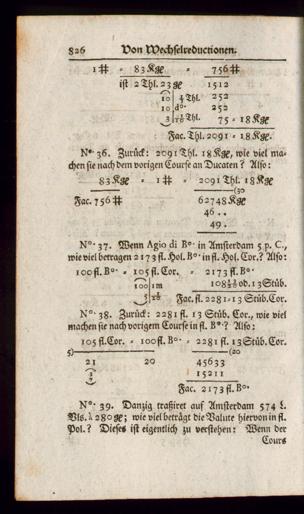 826 Von Wechselreductionen.
1 # = 83 Kge = 756 #
ist 2 Thl. 23 ge 1512
10 | ⅓ Thl. 252
10 | do· 252
3 | 1/10 Thl. 75 = 18 Kge
Fac. Thl. 2091 = 18 Kge.
No· 36. Zurück: 2091 Thl. 18 Kge, wie viel ma-
chen sie nach dem vorigen Course an Ducaten? Also:
83 Kge = 1 # = 2091 Thl. 18 Kge
(30
Fac. 756 # 62748 Kge
46 . .
49 .
No· 37. Wenn Agio di Bo· in Amsterdam 5 p. C.,
wie viel betragen 2173 fl. Hol. Bo· in fl. Hol. Cor.? Also:
100 fl. Bo· = 105 fl. Cor. = 2173 fl. Bo·
100 | 1m 108 13/20 od. 13 Stüb.
5 | 1/20 Fac. fl. 2281=13 Stüb. Cor.
No· 38. Zurück: 2281 fl. 13 Stüb. Cor., wie viel
machen sie nach vorigem Course in fl. Bo·? Also:
105 fl. Cor. = 100 fl. Bo· = 2281 fl. 13 Stüb. Cor.
5) (20
21 20 45633
15211
Fac. 2173 fl. Bo·
No· 39. Danzig trassiret auf Amsterdam 574 L.
Vls. à 280 ge; wie viel beträgt die Valute hiervon in fl.
Pol.? Dieses ist eigentlich zu verstehen: Wenn der
Cours